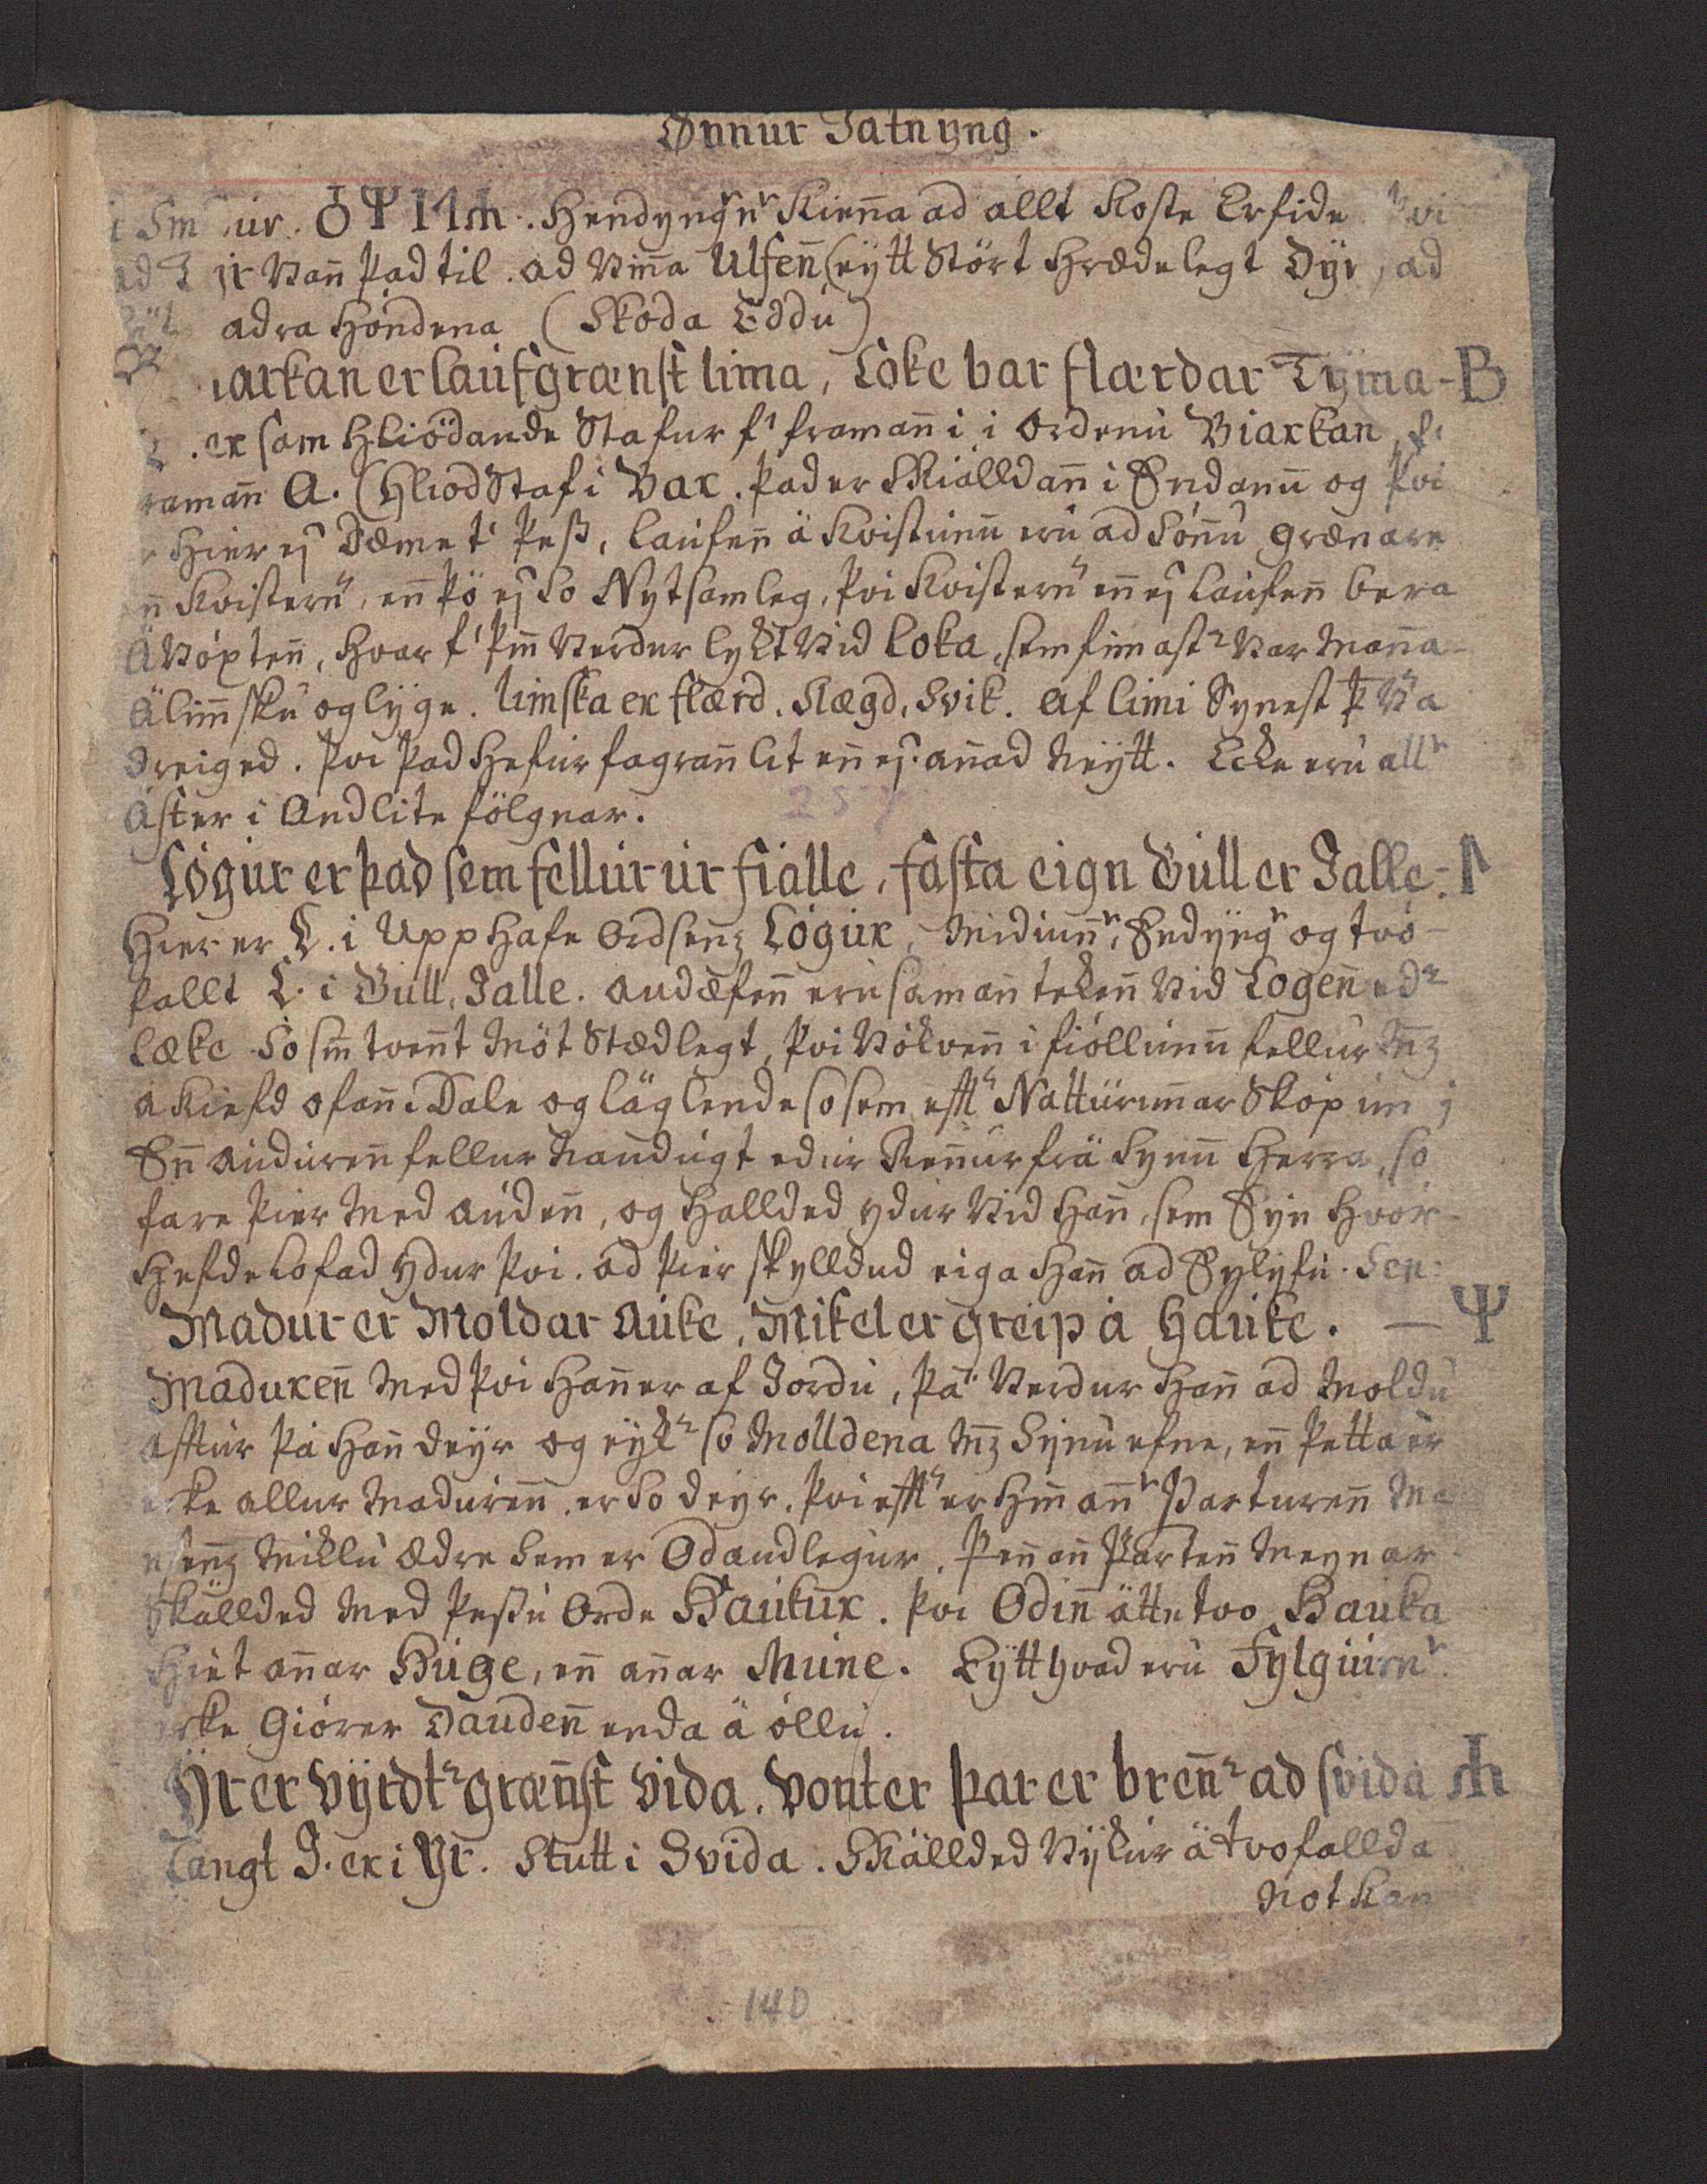 Ønnur Jatnyng.
ur. Hendyngn̄ Kienna ad allt Koste Erfide þvi
ad T ÿr Vañ þad til. ad Vinna Ulfeñ (eÿtt Stört Hrædelegt Dÿr, ad
adra Höndena (Skoda Eddu)
iarkan er laufgrænst lima, Loke bar flærdar Tÿma - B
er sam Hliödande Stafur f framañ i i Ordenu Biarkan, f
ramañ A. (Hliod Staf i Bar. þad er Skiälldañ i Endanū og þvi
Hier ej Dæme t þess, laufeñ ä Kvistunū eru ad Sönnu grænare
ñ Kvisterñ, eñ þö ej so Nytsamleg, þvi Kvisterñ eñ ej laufeñ bera
Ävöxteñ, Hvar f þm̄ Verdur lykt Vid Loka, sem fim ast Var Mañna
Älimsku og lÿge. limska er flærd. Slægd, Svik. af limi Synest
dreiged. þvi þad Hefur fagrañ lit eñ ej. añad Nÿtt. Ecke eru all
Äster i Andlite fölgnar.
Lögur er þad sem fellur ur fialle, fasta eign Gull er Jalle. ᛚ
Hier er L. i Upphafe Ordsenz Lögur, Midiuñ, Endÿng og tvö-
fallt L. i Gull, Jalle. audæfeñ eru samañ tekeñ Vid Logeñ ed
læke So sm̄ tveñt Möt Stædlegt, þvi Vökveñ i fiöllunū fellur Mz
akiefd ofañ i Dale og läglende so sem efft Nattürunar Sköpun
Eñ audureñ fellur Naudugt edur Reñur frä Synū Herra, so
fare þier Med audeñ, og Hallded ydur Vid Hañ, sem Eÿn Hvör
Hefde lofad ydur þvi. ad þier skylldud eiga Hañ ad Eÿlÿfu. Sen.
Madur er Moldar auke, Mikel er greip a Hauke. — ᛘ
Madureñ Med þvi Hañ er af Jordu, þä Verdur Hañ ad Moldu
afftur þä Hañ deÿr og eÿk so Molldena Mz Sÿnu efne, eñ þetta er
ecke allur Madureñ er So deÿr, þvi efft er Hm̄ añ Partureñ
Miklu ædre sem er Odaudlegur. Þeñañ Parteñ Meynar
Skällded Med þessu Orde Haukur. þvi Odiñ ätte tvo Hauka
Hiet añar Huge, eñ añar Mune. Eÿtt hvad eru Fylgiurn
ecke Giörer Daudeñ enda ä öllu.
Ÿr er Vÿrdt græñst Vida. Vonter þar er breñ ad svida
Langt I. er i Ÿr. Stutt i Svida. Skällded Vÿkur ä tvofallda
Notkan
140